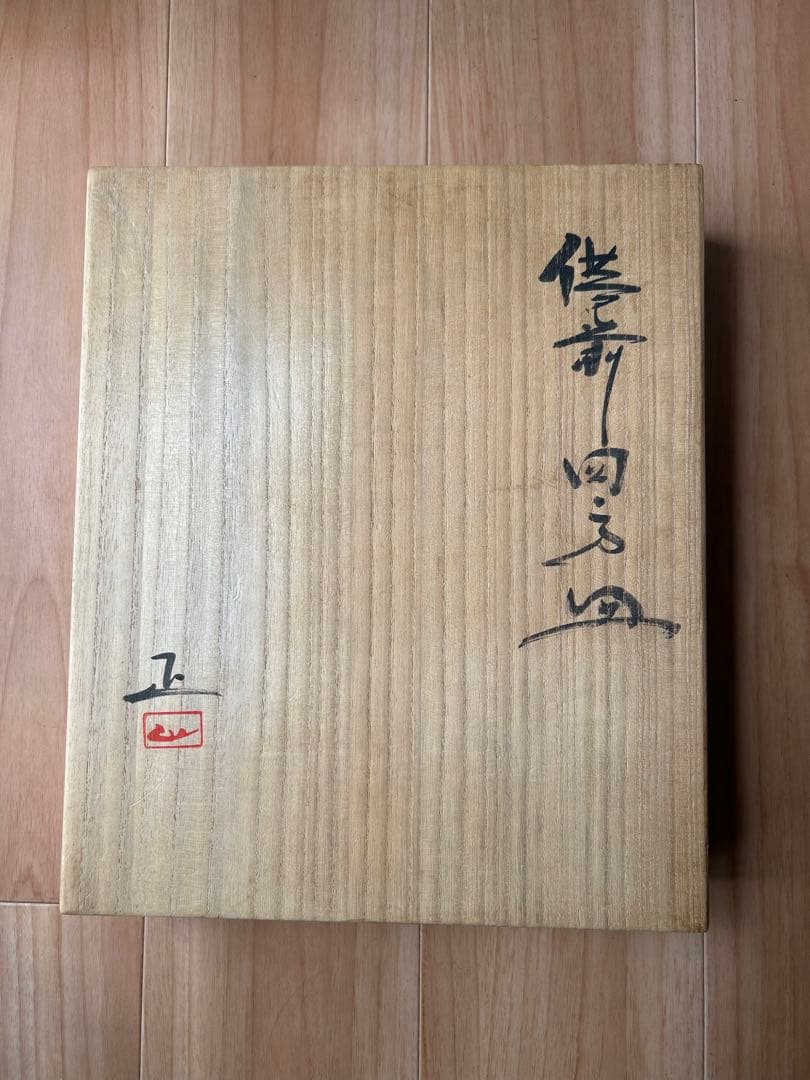 備前四方皿
正
山